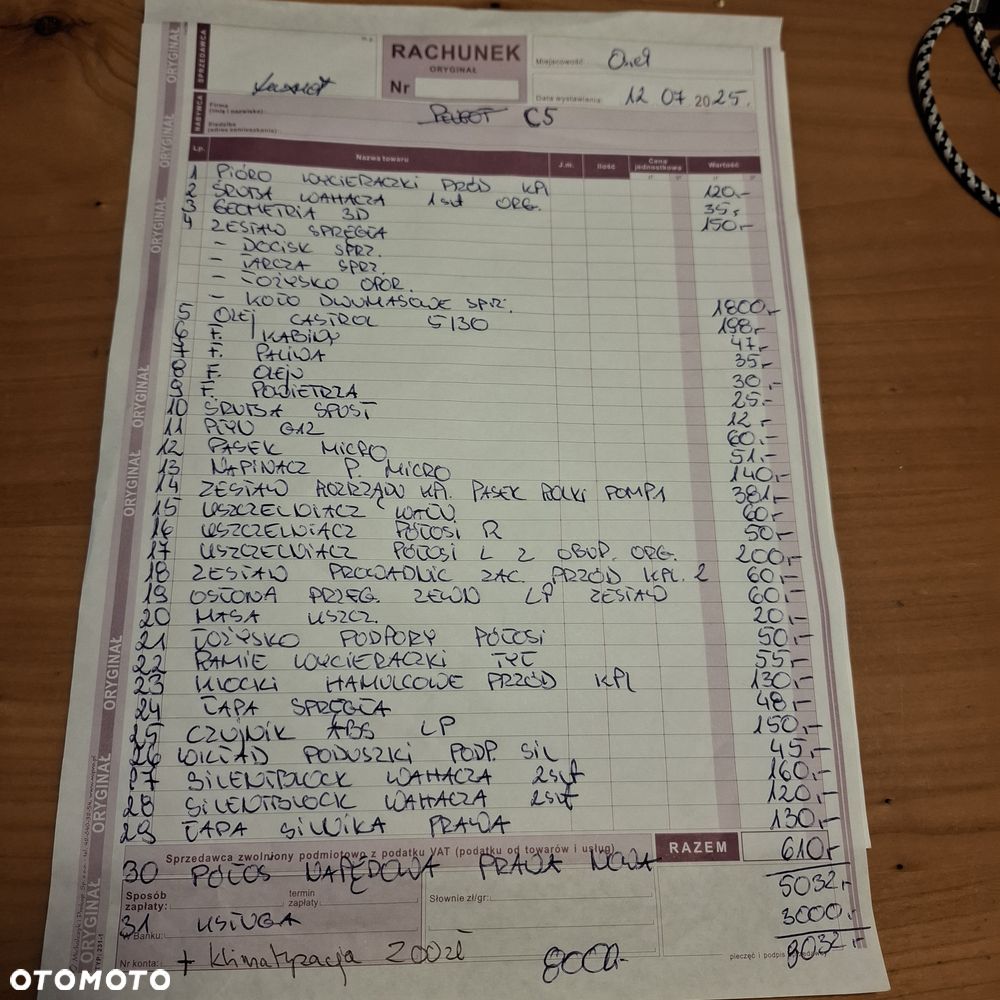 RACHUNEK
ORYGINAŁ
Nr
Miejscowość Orzeł
Data wystawienia 12 07 2025.
SPRZEDAWCA
NABYWCA
Firma
(imię i nazwisko)
PEUGOT C5
Siedziba
(adres zamieszkania)
Lp. Nazwa towaru J.m. Ilość Cena jednostkowa Wartość
1 PIÓRO WYCIERACZKI PRZÓD KPL 120,-
2 ŚRUBA WAHACZA 1szt ORG. 35,-
3 GEOMETRIA 3D 150,-
4 ZESTAW SPRZĘGŁA
- DOCISK SPRZ.
- TARCZA SPRZ.
- ŁOŻYSKO OPOR.
- KOŁO DWUMASOWE SPRZ. 1800,-
5 OLEJ CASTROL 5/30 198,-
6 F. KABINY 47,-
7 F. PALIWA 35,-
8 F. OLEJU 30,-
9 F. POWIETRZA 25,-
10 ŚRUBA SPUST 12,-
11 PŁYN G12 60,-
12 PASEK MICRO 51,-
13 NAPINACZ P. MICRO 140,-
14 ZESTAW ROZRZĄDU KPL. PASEK ROLKI POMPA 381,-
15 USZCZELNIACZ WAŁU 60,-
16 USZCZELNIACZ PÓŁOSI R 50,-
17 USZCZELNIACZ PÓŁOSI L Z OBUD. ORG. 200,-
18 ZESTAW PROWADNIC ZAC. PRZÓD KPL. 2 60,-
19 OSŁONA PRZEG. ZEWN LP ZESTAW 60,-
20 MASA USZCZ. 20,-
21 ŁOŻYSKO PODPORY PÓŁOSI 50,-
22 RAMIE WYCIERACZKI TYŁ 55,-
23 KLOCKI HAMULCOWE PRZÓD KPL 130,-
24 ŁAPA SPRZĘGŁA 48,-
25 CZUJNIK ABS LP 150,-
26 WKŁAD PODUSZKI PODP. SIL 45,-
27 SILENTBLOCK WAHACZA 2szt 160,-
28 SILENTBLOCK WAHACZA 2szt 120,-
29 ŁAPA SILNIKA PRAWA 130,-
Sprzedawca zwolniony podmiotowo z podatku VAT (podatku od towarów i usług) RAZEM
30 PÓŁOŚ NAPĘDOWA PRAWA NOWA 610,-
5032,-
Sposób zapłaty: termin zapłaty: Słownie zł/gr:
31 USŁUGA 3000,-
w Banku:
8032,-
Nr konta: + klimatyzacja 200zł 8000,-
pieczęć i podpis
OTOMOTO